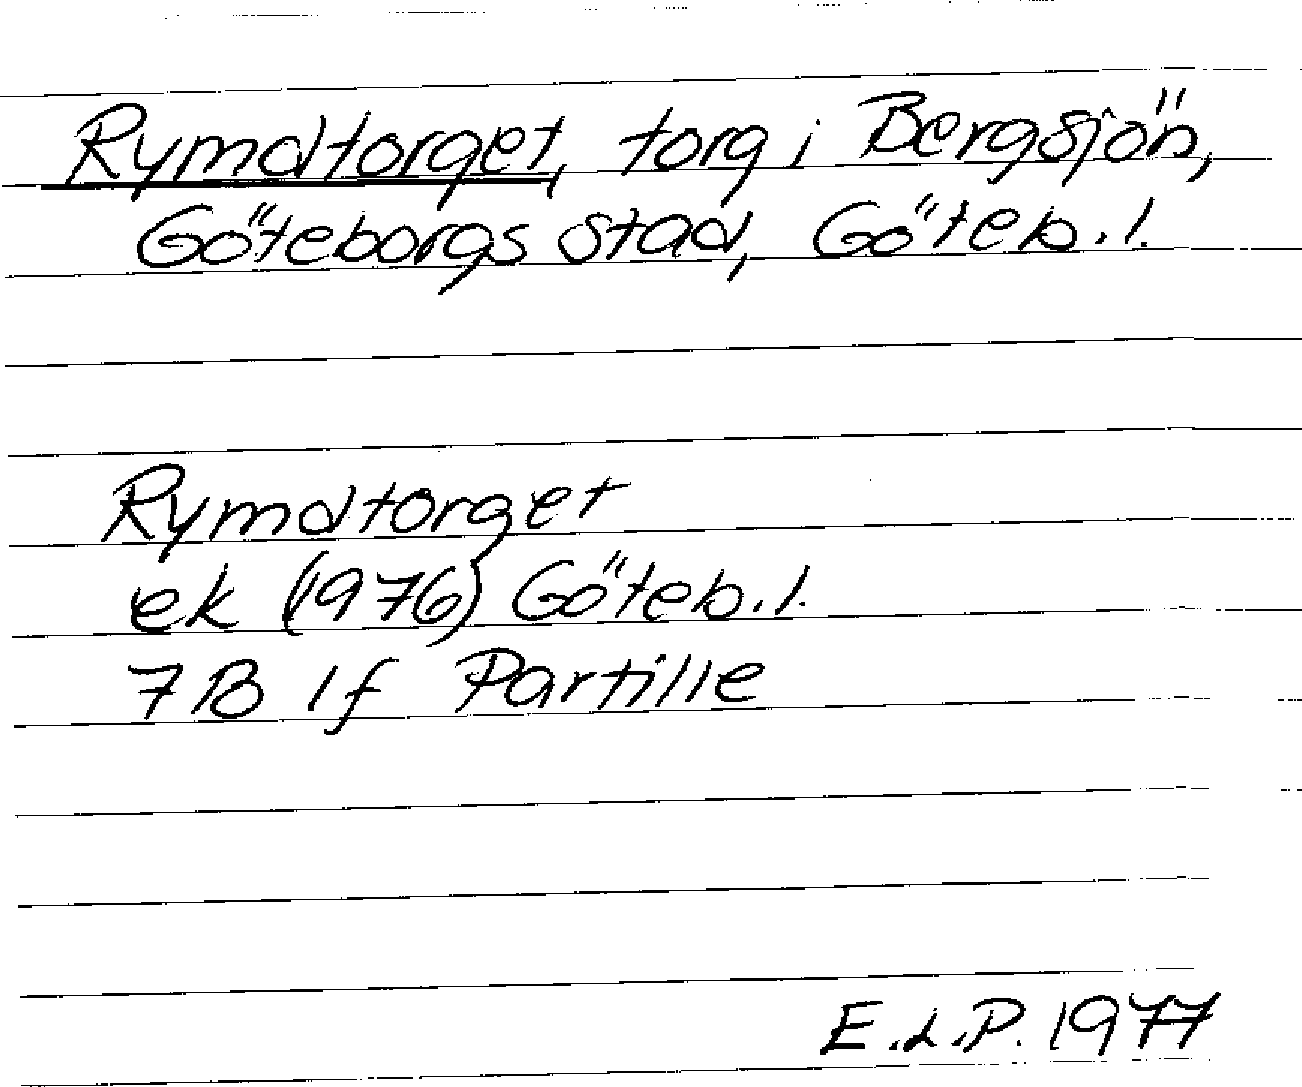 Rymdtorget, torg i Bergsjön,
Göteborgs stad, Göteb. l.
Rymdtorget
ek (1976) Göteb. l.
7B lf Partille
E.L.P. 1977